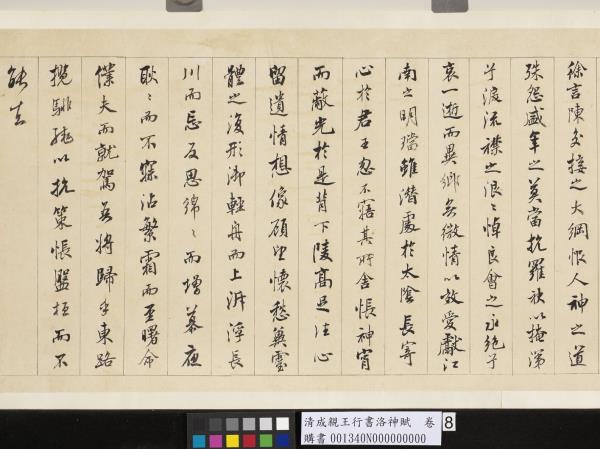 徐言陳交接之大綱恨人神之道
殊怨盛年之莫當抗羅袂以掩涕
兮淚流襟之浪〻悼良會之永絕兮
哀一逝而異鄉無微情以效愛獻江
南之明璫雖潛處於太陰長寄
心於君王忽不寤其所舍悵神宵
而蔽光於是背下陵高足往心
留遺情想像顧望懷愁冀靈
體之復形御輕舟而上泝浮長
川而忘反思綿〻而增慕夜
耿〻而不寐沾繁霜而至曙命
僕夫而就駕吾將歸乎東路
攬騑轡以抗策悵盤桓而不
能去
清成親王行書洛神賦 卷
購書 001340N000000000
8